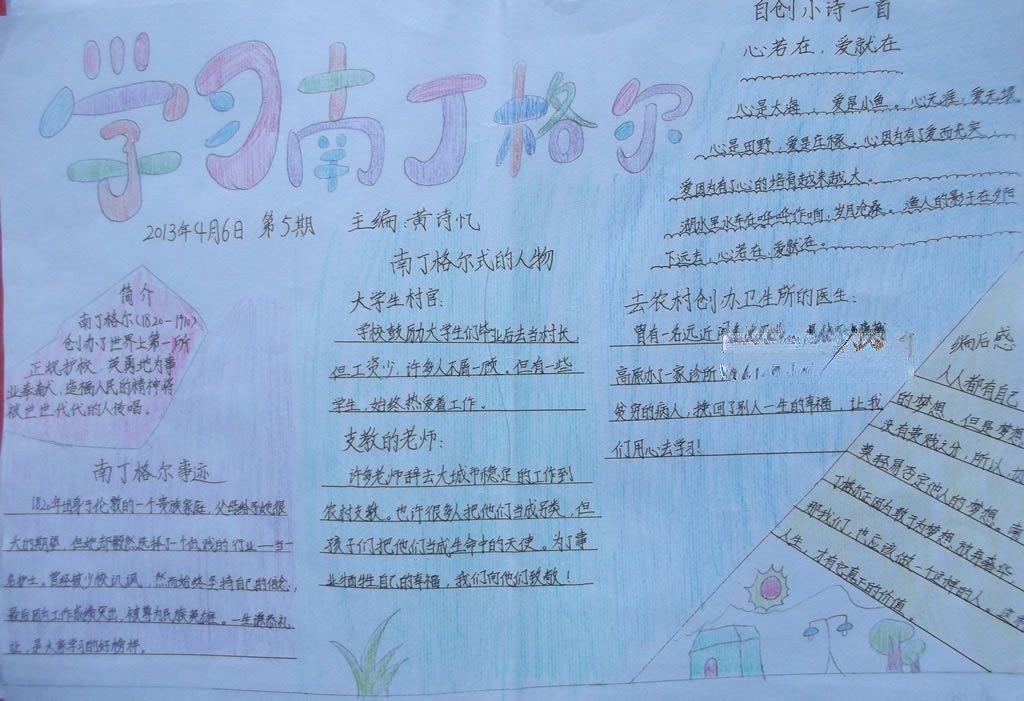 学习南丁格尔
2013年4月6日 第5期 主编:黄诗忆
简介
南丁格尔(1820-1910)
创办了世界上第一所
正规护校。英勇地为事
业奉献,造福人民的精神将
被世世代代的人传唱。
南丁格尔事迹
1820年出身于伦敦的一个贵族家庭,父母给予她很
大的期望,但她却毅然选择了一个低贱的行业——当一
名护士。曾经被少校讥讽,然而始终坚持自己的信念,
最后因为工作成绩突出,被尊为民族英雄。一生谦恭礼
让,是大家学习的好榜样。
南丁格尔式的人物
大学生村官:
学校鼓励大学生们毕业后去当村长,
但工资少,许多人不屑一顾。但有一些
学生,始终热爱着工作。
支教的老师:
许多老师辞去大城市稳定的工作到
农村支教。也许很多人把他们当成另类,但
孩子们把他们当成生命中的天使。为了事
业牺牲自己的幸福,我们向他们致敬!
自创小诗一首
心若在,爱就在
心是大海,爱是小鱼。心无涯,爱无境
心是田野,爱是庄稼。心因为有了爱而充实
爱因为有了心的培育越来越大。
湖水里水车在哗哗作响,岁月沧桑。渔人的影子在夕阳
下远去,心若在,爱就在。
去农村创办卫生所的医生:
曾有一名远近
高原办了一家诊所
贫穷的病人,挽回了别人一生的幸福,让我
们用心去学习!
编后感
人人都有自己
的梦想,但是梦想
没有贵贱之分,所以,
要轻易否定他人的梦想。南
丁格尔正因为敢于为梦想放弃奢华,
那我们,也应该做一个这样的人。
人生,才有它真正的价值。